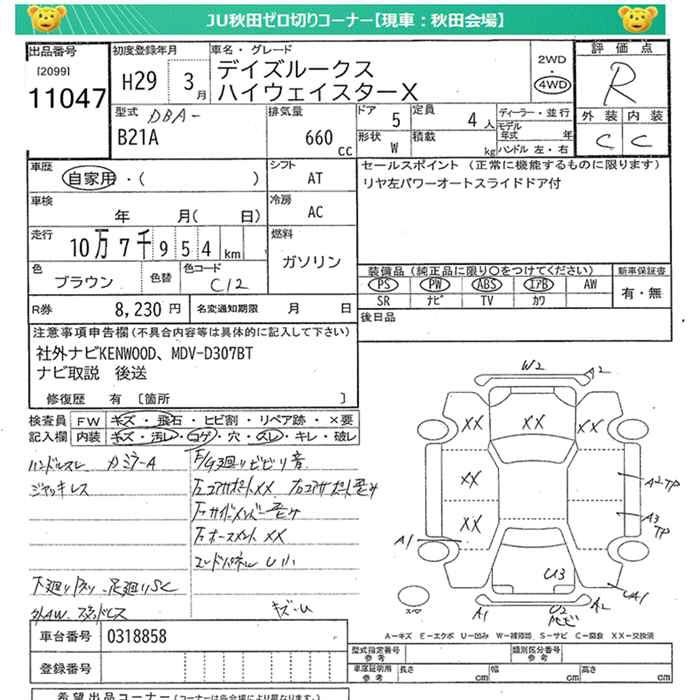 JU秋田ゼロ切りコーナー【現車：秋田会場】
出品番号
[2099]
11047
初度登録年月
H29 3月
車名・グレード
デイズルークス
ハイウェイスターX
2WD
・
4WD
評価点
R
外装 内装
C C
型式 DBA-
B21A
排気量
660 cc
ドア 5
定員 4人
形状 W
積載 kg
ディーラー・並行
モデル年式 年
ハンドル 左・右
車歴
自家用・( )
シフト
AT
車検
年 月( 日)
冷房
AC
走行
10万7千954km
燃料
ガソリン
色
ブラウン
色替
色コード
C12
R券 8,230 円
名変通知期限 月 日
セールスポイント (正常に機能するものに限ります)
リヤ左パワーオートスライドドア付
装備品(純正品に限り○をつけてください)
新車保証書
PS PW ABS エアB AW
SR ナビ TV カワ
有・無
後日品
注意事項申告欄(不具合内容等は具体的に記入して下さい)
社外ナビKENWOOD、MDV-D307BT
ナビ取説 後送
修復歴 有 [箇所 ]
検査員記入欄
FW キズ・飛石・ヒビ割・リペア跡・×要
内装 キズ・汚レ・コゲ・穴・スレ・キレ・破レ
ハンドルスレ
ジャッキレス
キズ・U
W2
A2
XX
XX
XX
XX
XX
A1
A2
TP
A3
TP
U3
UA1
A1
U2
A2
スペア
A-キズ E-エクボ U-凹み W-補修跡 S-サビ C-腐食 XX-交換済
車台番号 0318858
登録番号
型式指定番号
参考
類別区分番号
参考
車庫証明用
参考
長さ cm
幅 cm
高さ cm
希望出品コーナー(コーナーは会場により異なります)